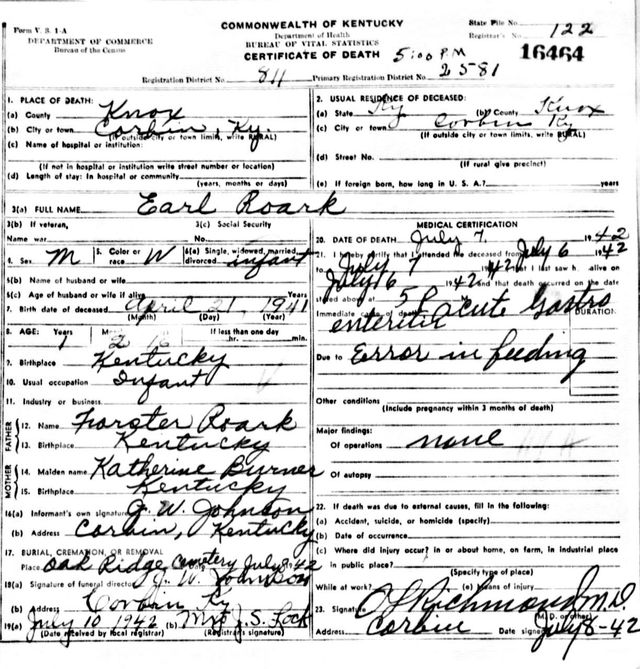 Form V. S. 1-A
COMMONWEALTH OF KENTUCKY
State File No.
122
DEPARTMENT OF COMMERCE
Bureau of the Census
Department of Health
BUREAU OF VITAL STATISTICS
Registrar's No.
CERTIFICATE OF DEATH 5:00 PM
16464
Registration District No. 811 Primary Registration District No. 2581
1. PLACE OF DEATH:
(a) County Knox
(b) City or town Corbin, Ky.
(If outside city or town limits, write RURAL)
(c) Name of hospital or institution:
(If not in hospital or institution write street number or location)
(d) Length of stay: In hospital or community
(years, months or days)
2. USUAL RESIDENCE OF DECEASED:
(a) State Ky (b) County Knox
(c) City or town Corbin Ky
(If outside city or town limits, write RURAL)
(d) Street No.
(If rural give precinct)
(e) If foreign born, how long in U. S. A.? years
3(a) FULL NAME Earl Roark
3(b) If veteran,
Name war
3(c) Social Security
No.
4. Sex M 5. Color or race W 6(a) Single, widowed, married, divorced infant
6(b) Name of husband or wife
6(c) Age of husband or wife if alive
7. Birth date of deceased April 21, 1941
(Month) (Day) (Year)
8. AGE: Years If less than one day
1 2 16 hr. min.
9. Birthplace Kentucky
10. Usual occupation Infant
11. Industry or business
FATHER
12. Name Forster Roark
13. Birthplace Kentucky
MOTHER
14. Maiden name Katherine Burner
15. Birthplace Kentucky
16(a) Informant's own signature J. W. Johnson
(b) Address Corbin, Kentucky
17. BURIAL, CREMATION, OR REMOVAL
Place Oak Ridge Cemetery July 8 1942
18(a) Signature of funeral director J. W. Johnson
(b) Address Corbin Ky
19(a) July 10 1942 (b) Mrs J. S. Lock
(Date received by local registrar) (Registrar's signature)
MEDICAL CERTIFICATION
20. DATE OF DEATH July 7, 1942
21. I hereby certify that I attended the deceased from July 6 1942
to July 7 1942 that I last saw h alive on
July 6 1942 and that death occurred on the date
stated above at 5 P
Immediate cause of death acute Gastro
DURATION
enteritis
Due to Error in feeding
Other conditions
(Include pregnancy within 3 months of death)
Major findings:
Of operations none
Of autopsy
22. If death was due to external causes, fill in the following:
(a) Accident, suicide, or homicide (specify)
(b) Date of occurrence
(c) Where did injury occur? in or about home, on farm, in industrial place
in public place?
(Specify type of place)
While at work? (e) Means of injury
23. Signature Richmond M.D.
(M. D. or other)
Corbin Date signed July 8-42